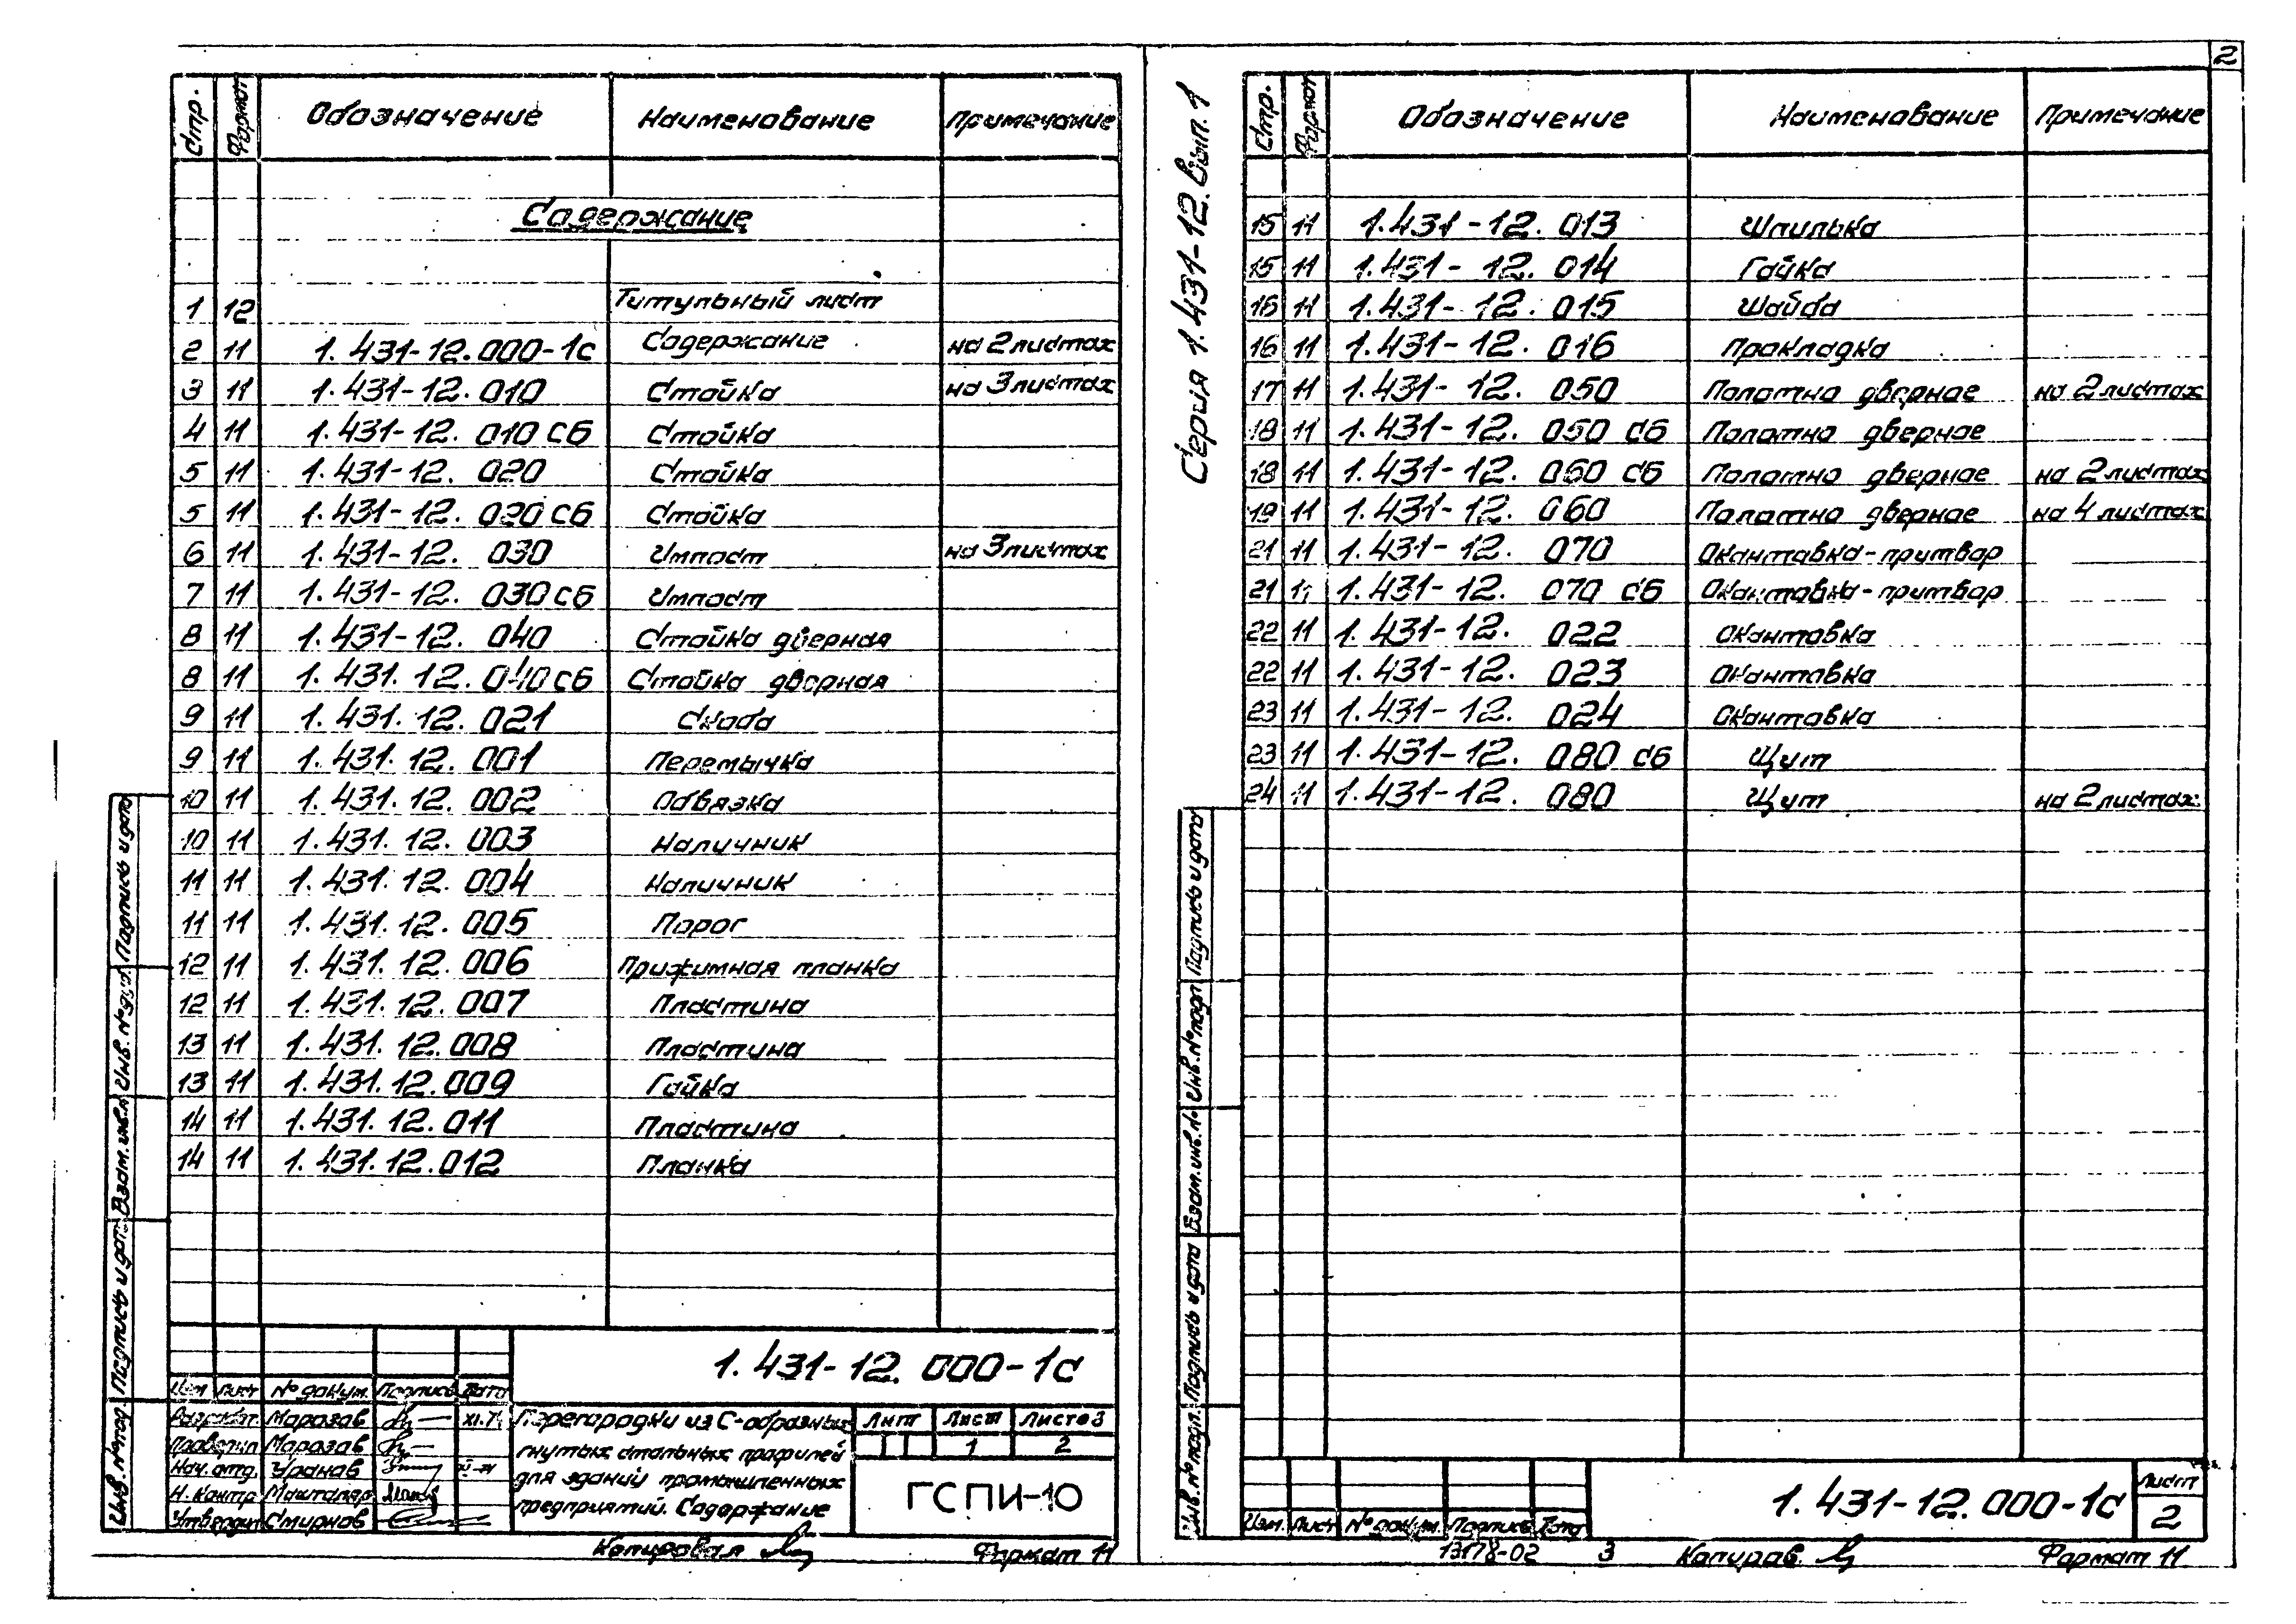 2
Стр. Формат Обозначение Наименование Примечание
Содержание
1 12 Титульный лист
2 11 1.431-12.000-1с Содержание на 2 листах
3 11 1.431-12.010 Стойка на 3 листах
4 11 1.431-12.010 сб Стойка
5 11 1.431-12.020 Стойка
5 11 1.431-12.020 сб Стойка
6 11 1.431-12.030 Импост на 3 листах
7 11 1.431-12.030 сб Импост
8 11 1.431-12.040 Стойка дверная
8 11 1.431.12.040 сб Стойка дверная
9 11 1.431.12.021 Скоба
9 11 1.431.12.001 Перемычка
10 11 1.431.12.002 Обвязка
10 11 1.431.12.003 Наличник
11 11 1.431.12.004 Наличник
11 11 1.431.12.005 Порог
12 11 1.431.12.006 Прижимная планка
12 11 1.431.12.007 Пластина
13 11 1.431.12.008 Пластина
13 11 1.431.12.009 Гайка
14 11 1.431.12.011 Пластина
14 11 1.431.12.012 Планка
1.431-12.000-1с
Изм Лист № докум. Подпись Дата
Разработ. Морозов
Проверил Морозов
Нач. отд. Уранов
Н. контр Машталяр
Утвердил Смирнов
Перегородки из С-образных
гнутых стальных профилей
для зданий промышленных
предприятий. Содержание
Лит Лист Листов
1 2
ГСПИ-10
Копировал
Формат 11
Инв. № подл. Подпись и дата Взам. инв. № Инв. № дубл. Подпись и дата
Серия 1.431-12. Вып. 1
Стр. Формат Обозначение Наименование Примечание
15 11 1.431-12.013 Шпилька
15 11 1.431-12.014 Гайка
16 11 1.431-12.015 Шайба
16 11 1.431-12.016 Прокладка
17 11 1.431-12.050 Полотно дверное на 2 листах
18 11 1.431-12.050 сб Полотно дверное
18 11 1.431-12.060 сб Полотно дверное на 2 листах
19 11 1.431-12.060 Полотно дверное на 4 листах
21 11 1.431-12.070 Окантовка-притвор
21 11 1.431-12.070 сб Окантовка-притвор
22 11 1.431-12.022 Окантовка
22 11 1.431-12.023 Окантовка
23 11 1.431-12.024 Окантовка
23 11 1.431-12.080 сб Щит
24 11 1.431-12.080 Щит на 2 листах.
Инв. № подл. Подпись и дата Взам. инв. № Инв. № подл Подпись и дата
1.431-12.000-1с
Лист
2
Изм. Лист № докум. Подпись Дата
13178-02 3 Копиров.
Формат 11